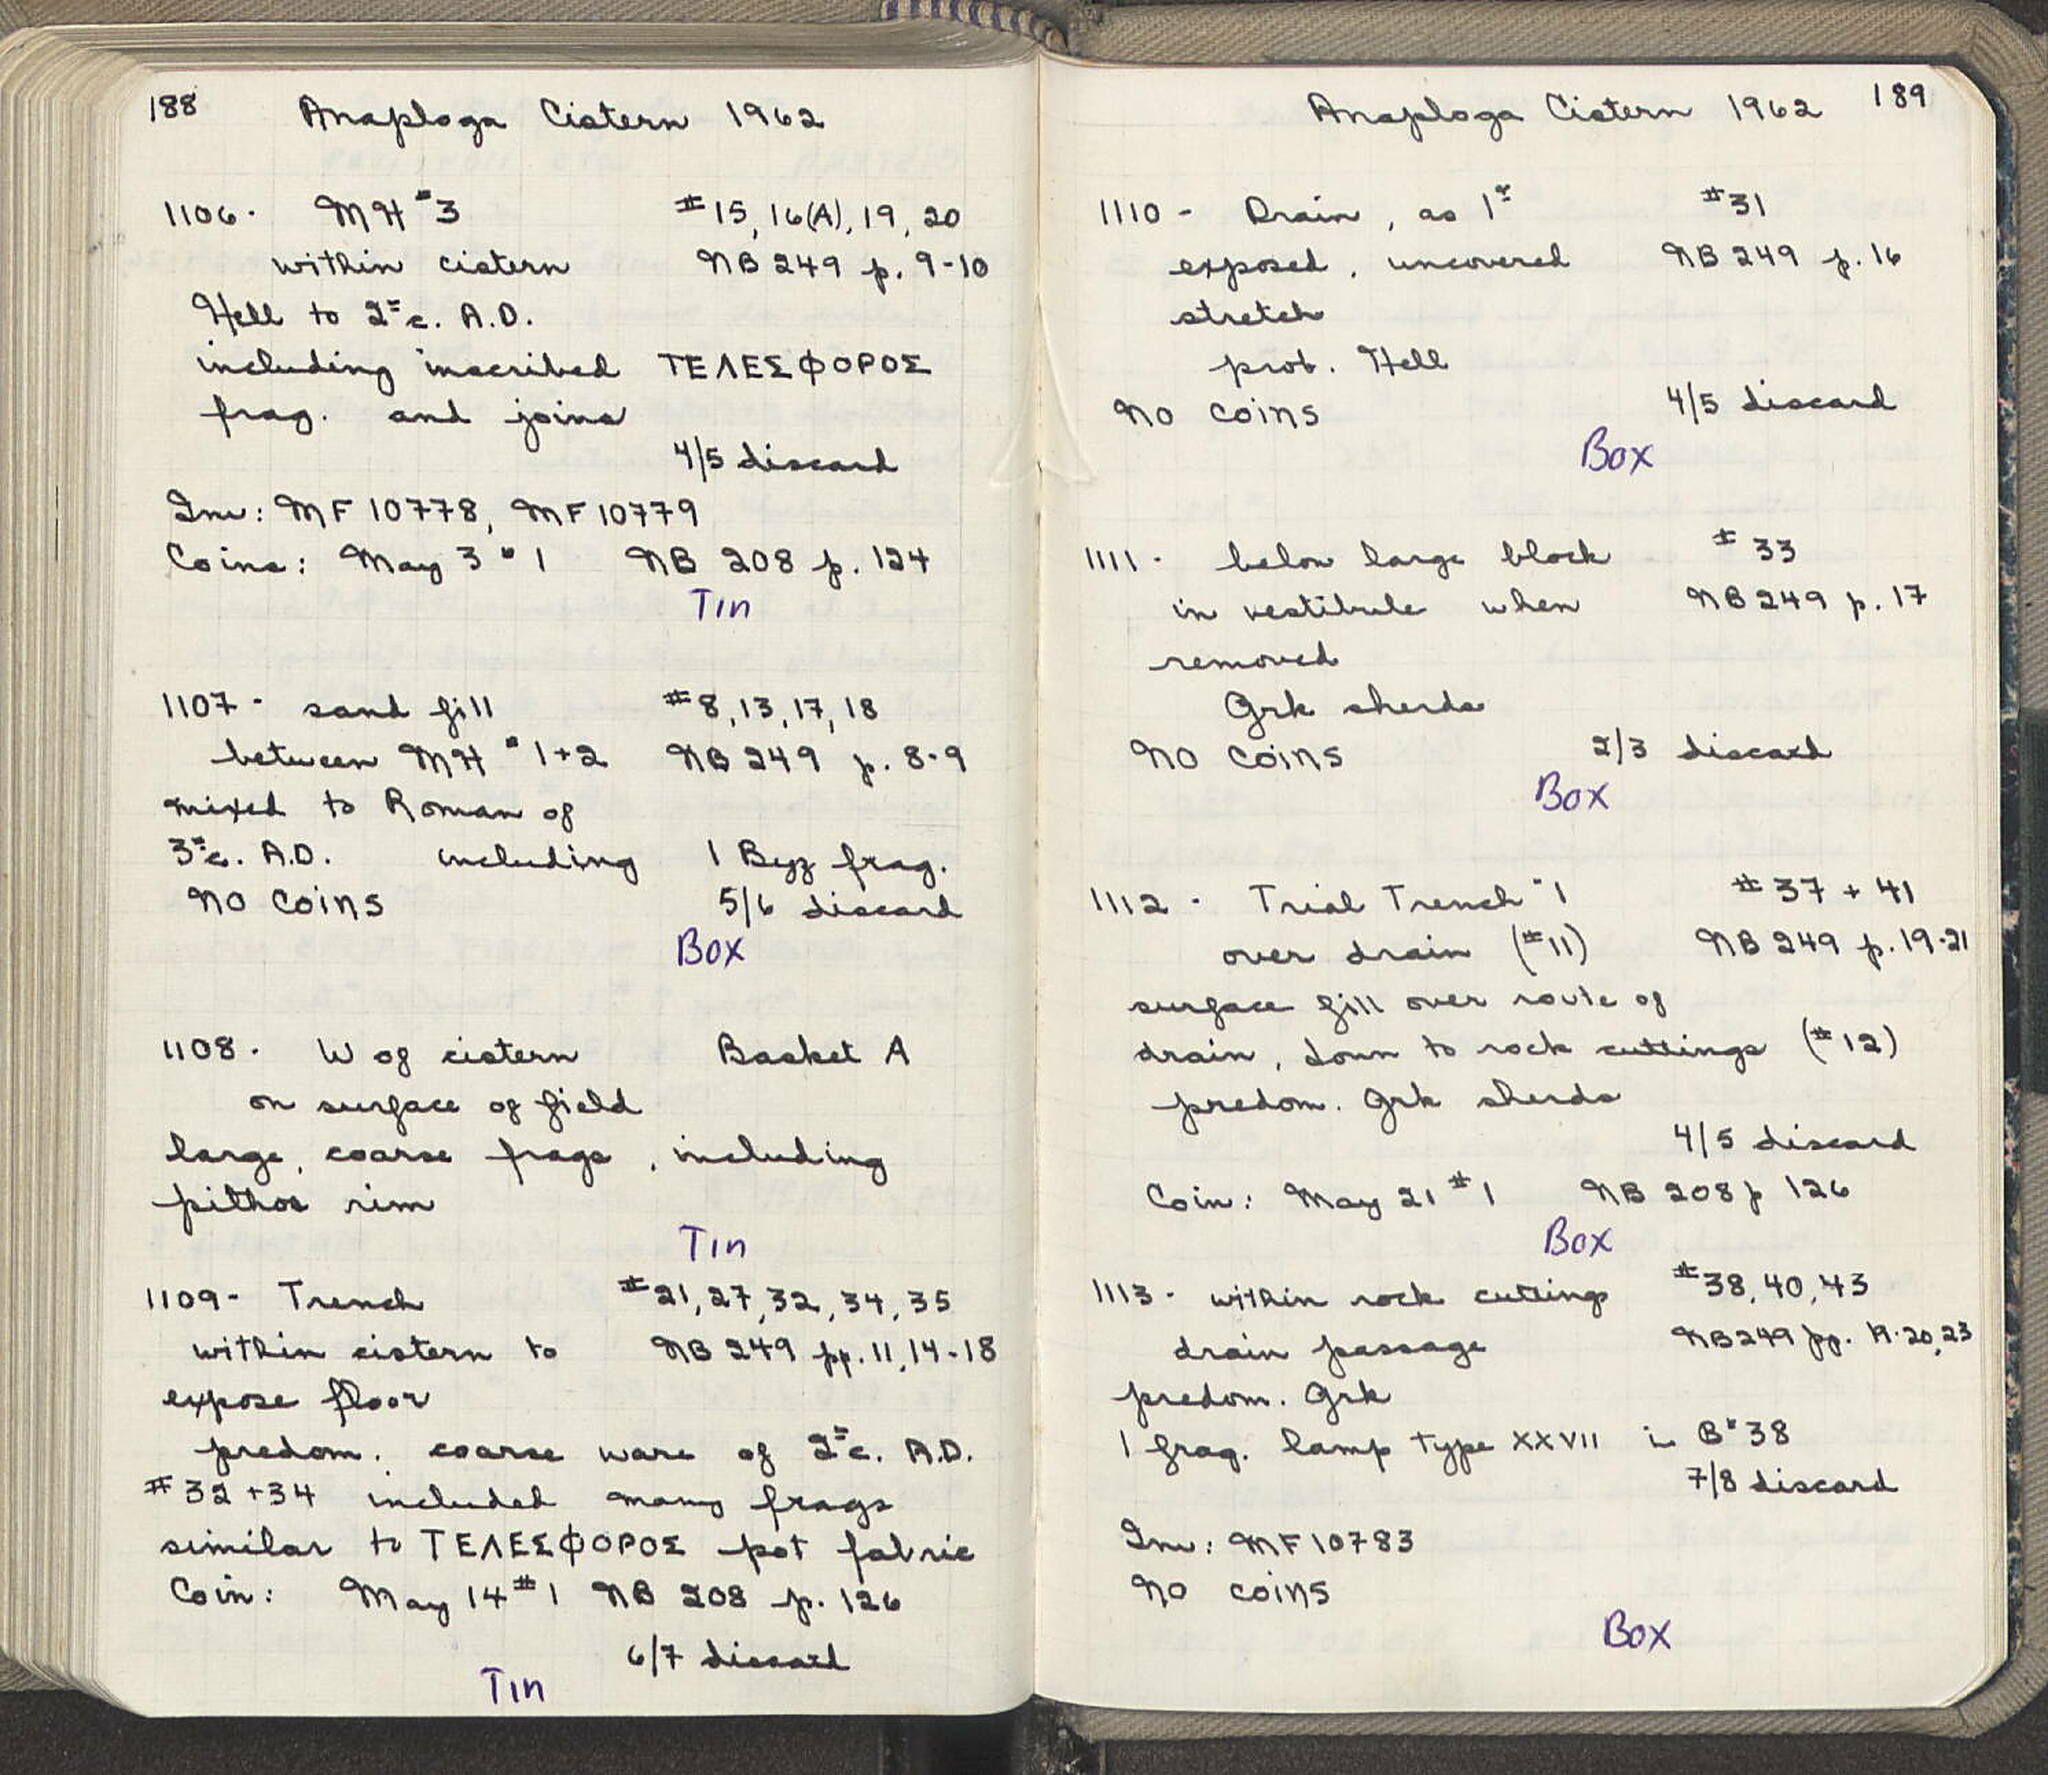 188 Anaploga Cistern 1962
1106. MH #3 #15, 16(A), 19, 20
within cistern NB 249 p. 9-10
Hell to 2nd c. A.D.
including inscribed ΤΕΛΕΣΦΟΡΟΣ
frag. and joins
4/5 discard
Inv: MF 10778, MF 10779
Coins: May 3 #1 NB 208 p. 124
Tin
1107 - sand fill #8, 13, 17, 18
between MH #1+2 NB 249 p. 8-9
mixed to Roman of
3rd c. A.D. including 1 Byz frag.
No Coins 5/6 discard
Box
1108. W of cistern Basket A
on surface of field
large, coarse frags, including
pithos rim
Tin
1109- Trench #21, 27, 32, 34, 35
within cistern to NB 249 pp. 11, 14-18
expose floor
predom. coarse ware of 2nd c. A.D.
#32+34 included many frags
similar to ΤΕΛΕΣΦΟΡΟΣ pot fabric
Coin: May 14 #1 NB 208 p. 126
6/7 discard
Tin
Anaploga Cistern 1962 189
1110 - Drain, as 1st #31
exposed, uncovered NB 249 p. 16
stretch
prob. Hell
No coins 4/5 discard
Box
1111. below large block #33
in vestibule when NB 249 p. 17
removed
Grk sherds
No coins 2/3 discard
Box
1112. Trial Trench #1 #37 + 41
over drain (#11) NB 249 p. 19-21
surface fill over route of
drain, down to rock cuttings (#12)
predom. Grk sherds
4/5 discard
Coin: May 21 #1 NB 208 p 126
Box
1113. within rock cuttings #38, 40, 43
drain passage NB 249 pp. 20, 23
predom. Grk
1 frag. lamp type XXVII in B#38
7/8 discard
Inv: MF 10783
No coins
Box